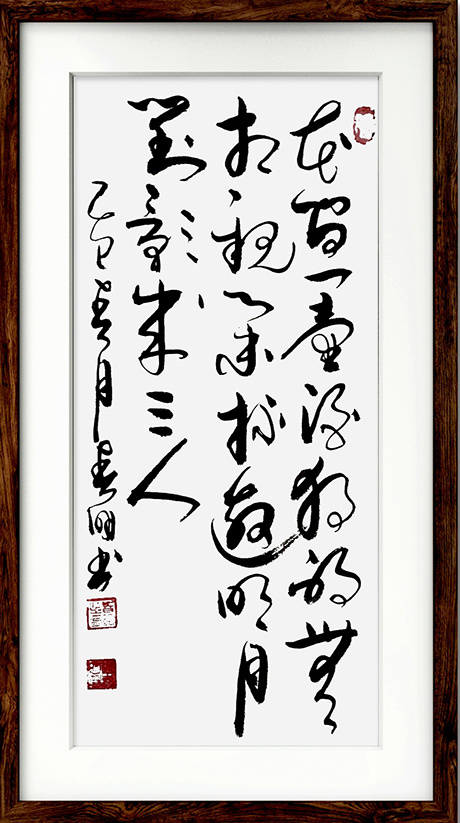 花間一壺酒獨酌無
相親舉杯邀明月
對影成三人
乙巳春月春書